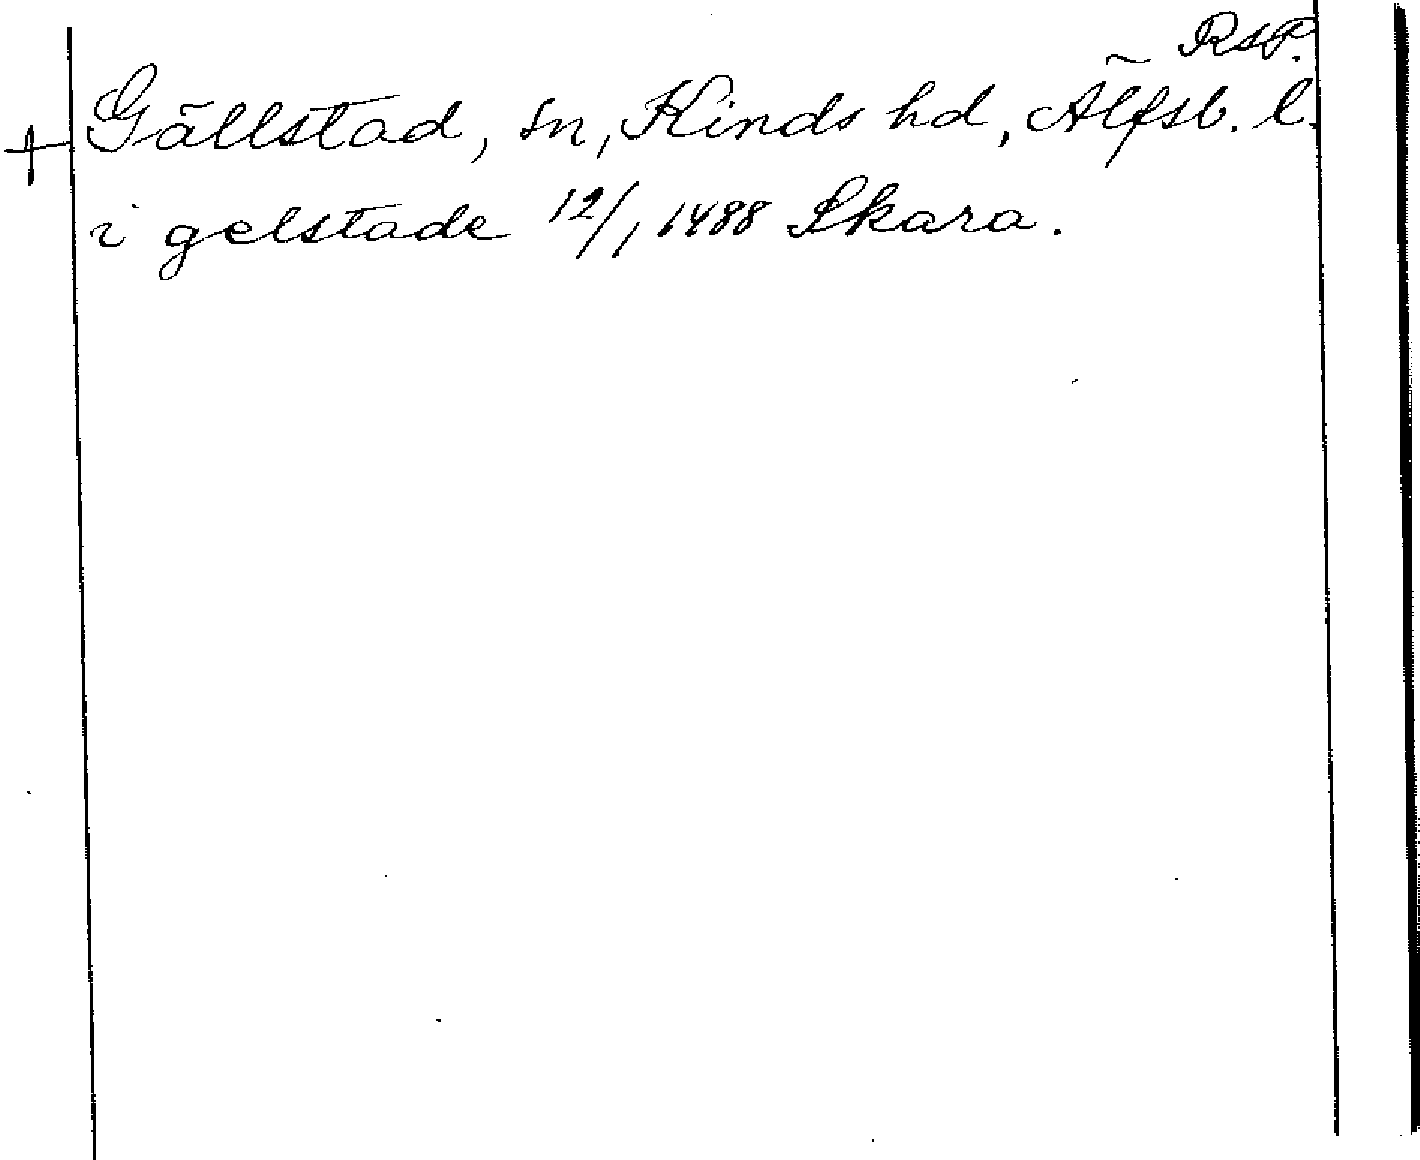 RAP.
+ Gällstad, sn, Kinds hd, Älfsb. l.
i gelstade 12/1 1488 Skara.